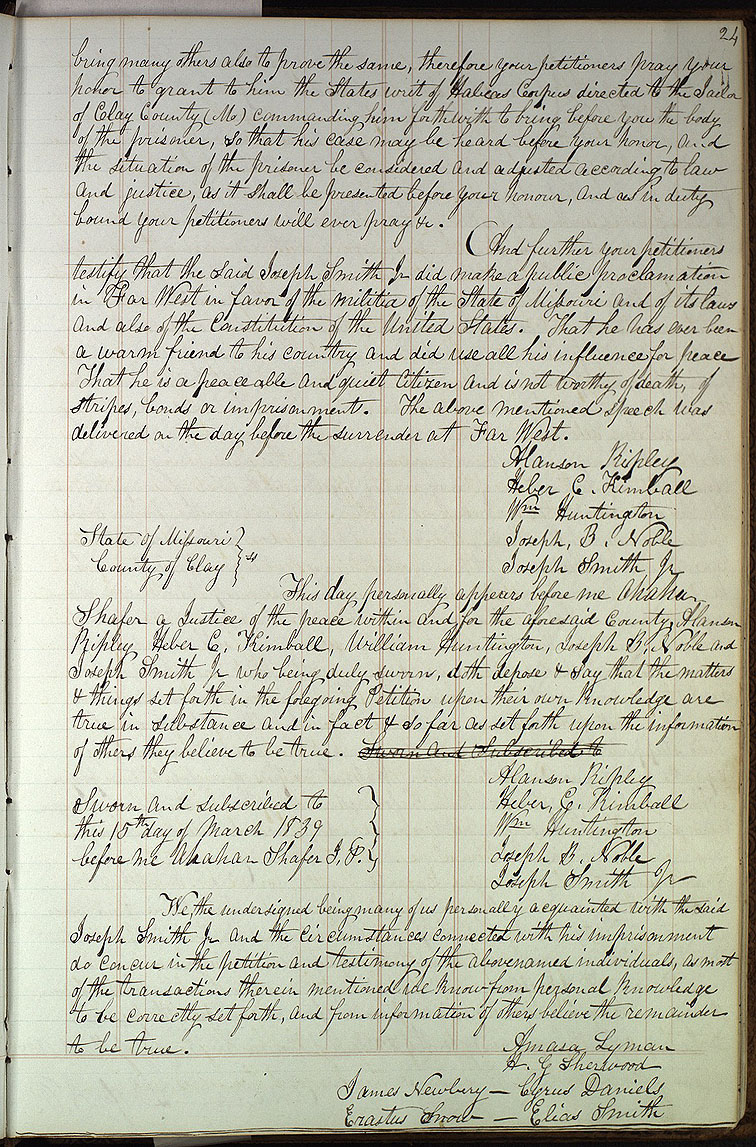 24
bring many others also to prove the same, therefore your petitioners pray your
honor to grant to him the States writ of Habeas Corpus directed to the Jailor
of Clay County (Mo) commanding him forthwith to bring before you the body
of the prisoner, so that his case may be heard before your honor, and
the situation of the prisoner be considered and adjusted according to law
and justice, as it shall be presented before your honour, and as in duty
bound your petitioners will ever pray &c.
And further your petitioners
testify that the said Joseph Smith Jr did make a public proclamation
in Far West in favor of the militia of the State of Missouri and of its laws
and also of the Constitution of the United States. That he has ever been
a warm friend to his country and did use all his influence for peace
That he is a peaceable and quiet Citizen and is not worthy of death, of
stripes, bonds or imprisonment. The above mentioned speech was
delivered on the day before the surrender at Far West.
Alanson Ripley
Heber C. Kimball
Wm Huntington
Joseph, B. Noble
Joseph Smith Jr
State of Missouri
County of Clay } ss
This day personally appears before me
Shafer a Justice of the peace within and for the aforesaid County, Alanson
Ripley Heber C. Kimball, William Huntington, Joseph B. Noble and
Joseph Smith Jr who being duly sworn, doth depose & say that the matters
& things set forth in the foregoing Petition upon their own Knowledge are
true in substance and in fact & so far as set forth upon the information
of others they believe to be true. Sworn and Subscribed to
Alanson Ripley
Heber, C. Kimball
Wm Huntington
Joseph B. Noble
Joseph Smith Jr
Sworn and subscribed to
this 15th day of March 1839
before me Shafer J. P.
We, the undersigned being many of us personally acquainted with the said
Joseph Smith Jr and the circumstances connected with his imprisonment
do concur in the petition and testimony of the above named individuals, as most
of the transactions therein mentioned we know from personal Knowledge
to be correctly set forth, and from information of others believe the remainder
to be true.
Amasa Lyman
H. G Sherwood
James Newbery — Cyrus Daniels
Erastus Snow — Elias Smith